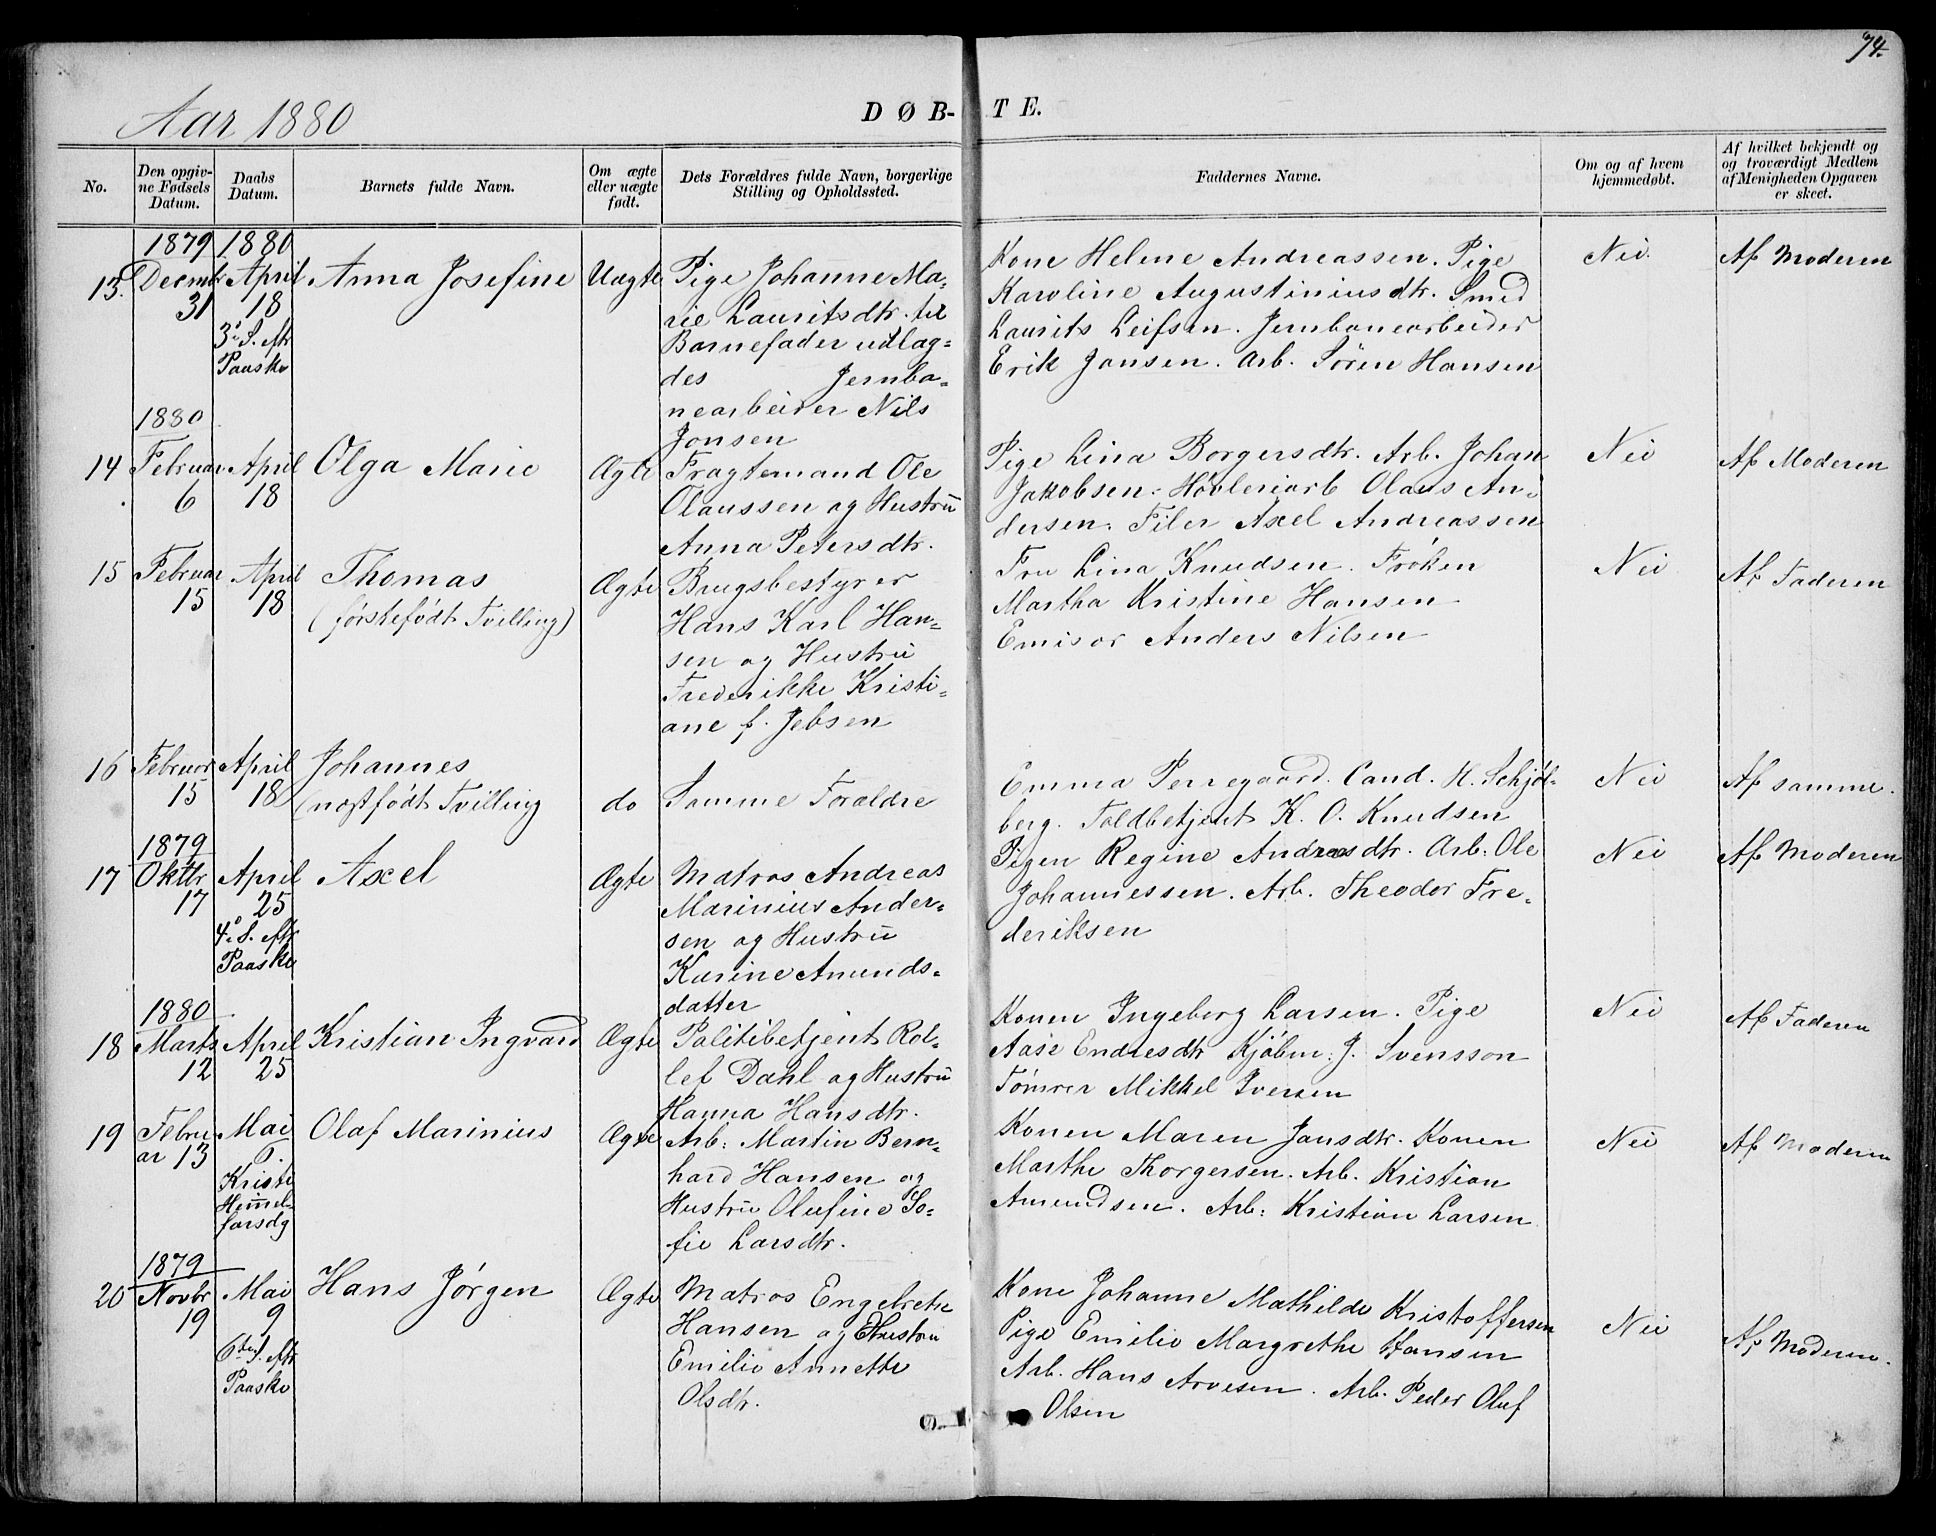 74.
Aar 1880
DØB-TE.
No.
Den opgiv-
ne Fødsels
Datum.
Daabs
Datum.
Barnets fulde Navn.
Om ægte
eller uægte
født.
Dets Forældres fulde Navn, borgerlige
Stilling og Opholdssted.
Faddernes Navne.
Om og af hvem
hjemmedøbt.
Af hvilket bekjendt og
og troværdigt Medlem
af Menigheden Opgaven
er skeet.
13.
1879
Decmbr
31
1880
April
18
3. S. eftr
Paaske
Anna Josefine
Uægte
Pige Johanne Ma-
rie Lauritsdtr. til
Barnefader udlag-
des Jernba-
nearbeider Nils
Jonsen
Kone Helene Andreassen. Pige
Karoline Augustiniusdtr. Smed
Laurits Leifsen. Jernbanearbeider
Erik Jansen. Arb. Søren Hansen
Nei.
Af Moderen
14
1880
Februar
6
April
18
Olga Marie
Ægte
Fragtemand Ole
Olaussen og Hustru
Anna Petersdtr.
Pige Lina Borgersdtr. Arb. Johan
Jakobsen. Høvleriarb Olaus An-
dersen. Filer Axel Andreassen
Nei
Af Moderen
15
Februar
15
April
18
Thomas
(førstefødt Tvilling)
Ægte
Brugsbestyrer
Hans Karl Han-
sen og Hustru
Frederikke Kristi-
ane f. Jebsen
Fru Lina Knudsen. Frøken
Martha Kristine Hansen
Emisør Anders Nilsen
Nei
Af Faderen
16
Februar
15
April
18
Johannes
(næstfødt Tvilling
do
Samme Forældre
Emma Perregaard. Cand. H. Schjøl-
berg. Toldbetjent K. O. Knudsen
Nei
Af samme.
17
1879
Oktbr
17
April
25
4. S. eftr
Paaske
Axel
Ægte
Matros Andreas
Marinius Ander-
sen og Hustru
Karine Amunds-
datter
Pigen Regine Andreasdtr. Arb. Ole
Johannessen. Arb. Theodor Fre-
deriksen
Nei
Af Moderen
18
1880
Marts
12
April
25
Kristian Ingvard
Ægte
Politibetjent Rol-
lef Dahl og Hustru
Hanna Hansdtr.
Konen Ingeborg Larsen. Pige
Aase Endresdtr Kjøbm. J. Svensson
Tømrer Mikkel Iversen
Nei
Af Faderen
19
Febru
ar 13
Mai
6.
Kristi
Himmel-
farsdg
Olaf Marinius
Ægte
Arb: Martin Bern-
hard Hansen og
Hustru Olufine So-
fie Larsdtr.
Konen Maren Jansdtr. Konen
Marthe Thorgersen. Arb. Kristian
Amundsen. Arb: Kristian Larsen
Nei
Af Moderen
20
1879
Novbr
19
Mai
9
6te S. eftr
Paaske
Hans Jørgen
Ægte
Matros Engebreth
Hansen og Hustru
Emilie Annette
Olsdtr.
Kone Johanne Mathilde Kristoffersen
Pige Emilie Margrethe Hansen
Arb. Hans Arvesen. Arb. Peder Oluf
Olsen
Nei
Af Moderen.